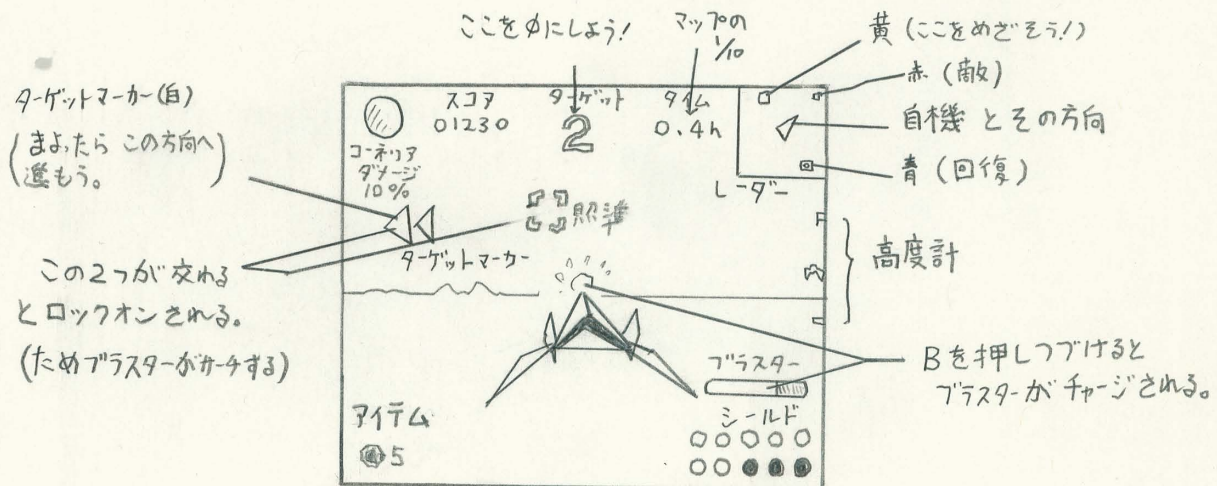 ここを0にしよう!
マップの
1/10
黄 (ここをめざそう!)
赤 (敵)
自機 とその方向
青 (回復)
高度計
ターゲットマーカー(白)
(まよったら この方向へ
進もう。)
スコア
01230
ターゲット
2
タイム
0.4h
コーネリア
ダメージ
10%
レーダー
照準
ターゲットマーカー
この2つが交れる
とロックオンされる。
(ためブラスターがサーチする)
ブラスター
Bを押しつづけると
ブラスターがチャージされる。
シールド
アイテム
5